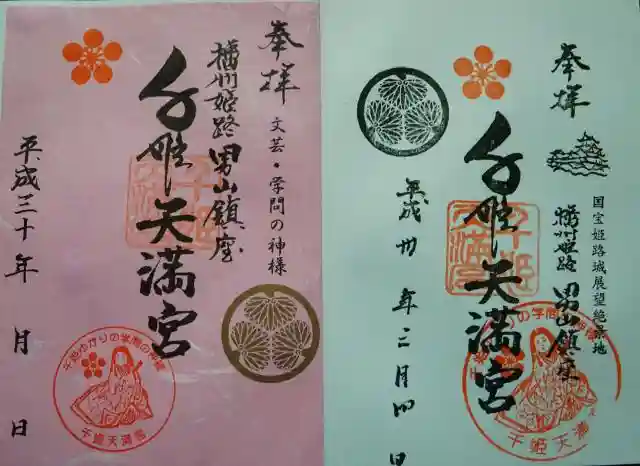 奉拝
文芸・学問の神様
播州姫路 男山鎮座
千姫天満宮
平成三十年 月 日
千姫ゆかりの学問の神様
千姫天満宮
奉拝
国宝姫路城展望絶景地
播州姫路 男山鎮座
千姫天満宮
平成卅年二月四日
千姫天満宮